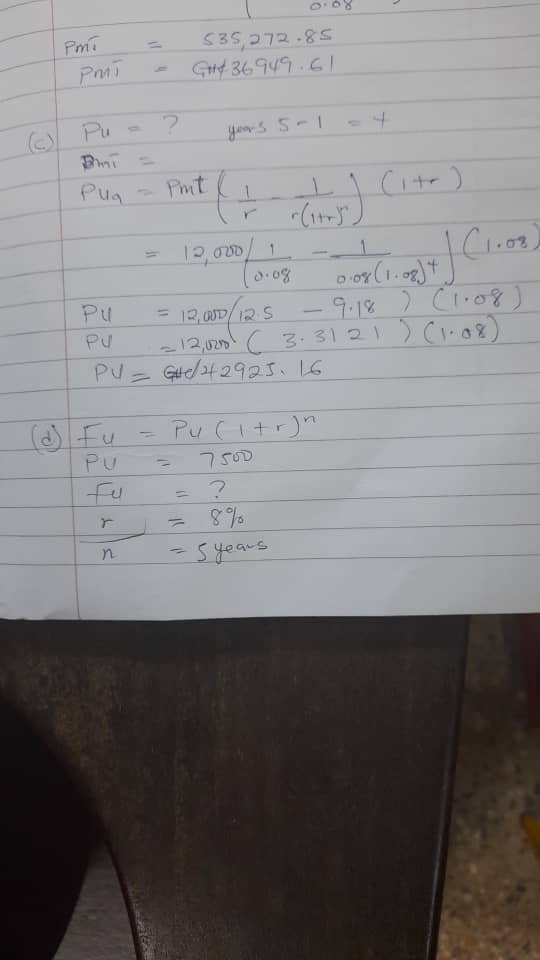 0.08
Pmt = 535,272.85
Pmt = GH¢36949.61
(c) Pu = ? years 5-1 = 4
Pmt =
Pua = Pmt (1/r - 1/r(1+r)^n) (1+r)
= 12,000 (1/0.08 - 1/0.08(1.08)^4) (1.08)
PU = 12,000 (12.5 - 9.18) (1.08)
PU = 12,000 (3.3121) (1.08)
PU = GH¢42925.16
(d) Fu = Pu (1+r)^n
PU = 7500
Fu = ?
r = 8%
n = 5 years